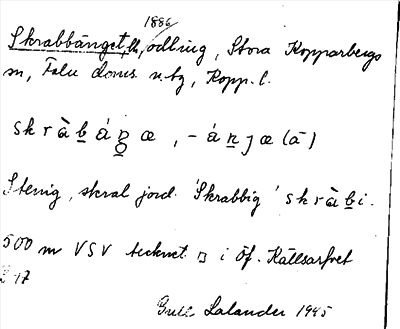 1886
Skrabbänget, odling, Stora Kopparbergs
sn, Falu doms. n. tg, Kopp. l.
skràbáŋæ, -áŋɟæ (ā)
Stenig, skral jord. 'Skrabbig' skràbi.
500 m VSV tecknet □ i Öf. Källsarfvet
17
Lalander 1945